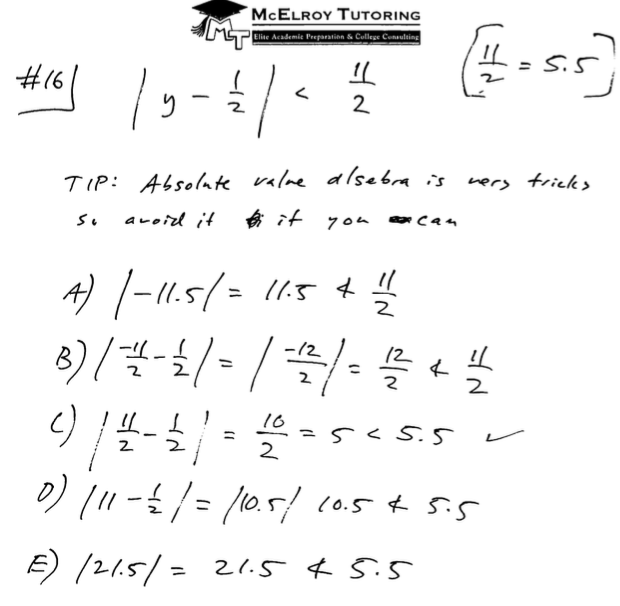 McELROY TUTORING
Elite Academic Preparation & College Consulting
MT
#16 |y - 1/2| < 11/2 [11/2 = 5.5]
TIP: Absolute value algebra is very tricky
so avoid it if you can
A) |-11.5| = 11.5 ≮ 11/2
B) |-11/2 - 1/2| = |-12/2| = 12/2 ≮ 11/2
C) |11/2 - 1/2| = 10/2 = 5 < 5.5 ✓
D) |11 - 1/2| = |10.5| 10.5 ≮ 5.5
E) |21.5| = 21.5 ≮ 5.5